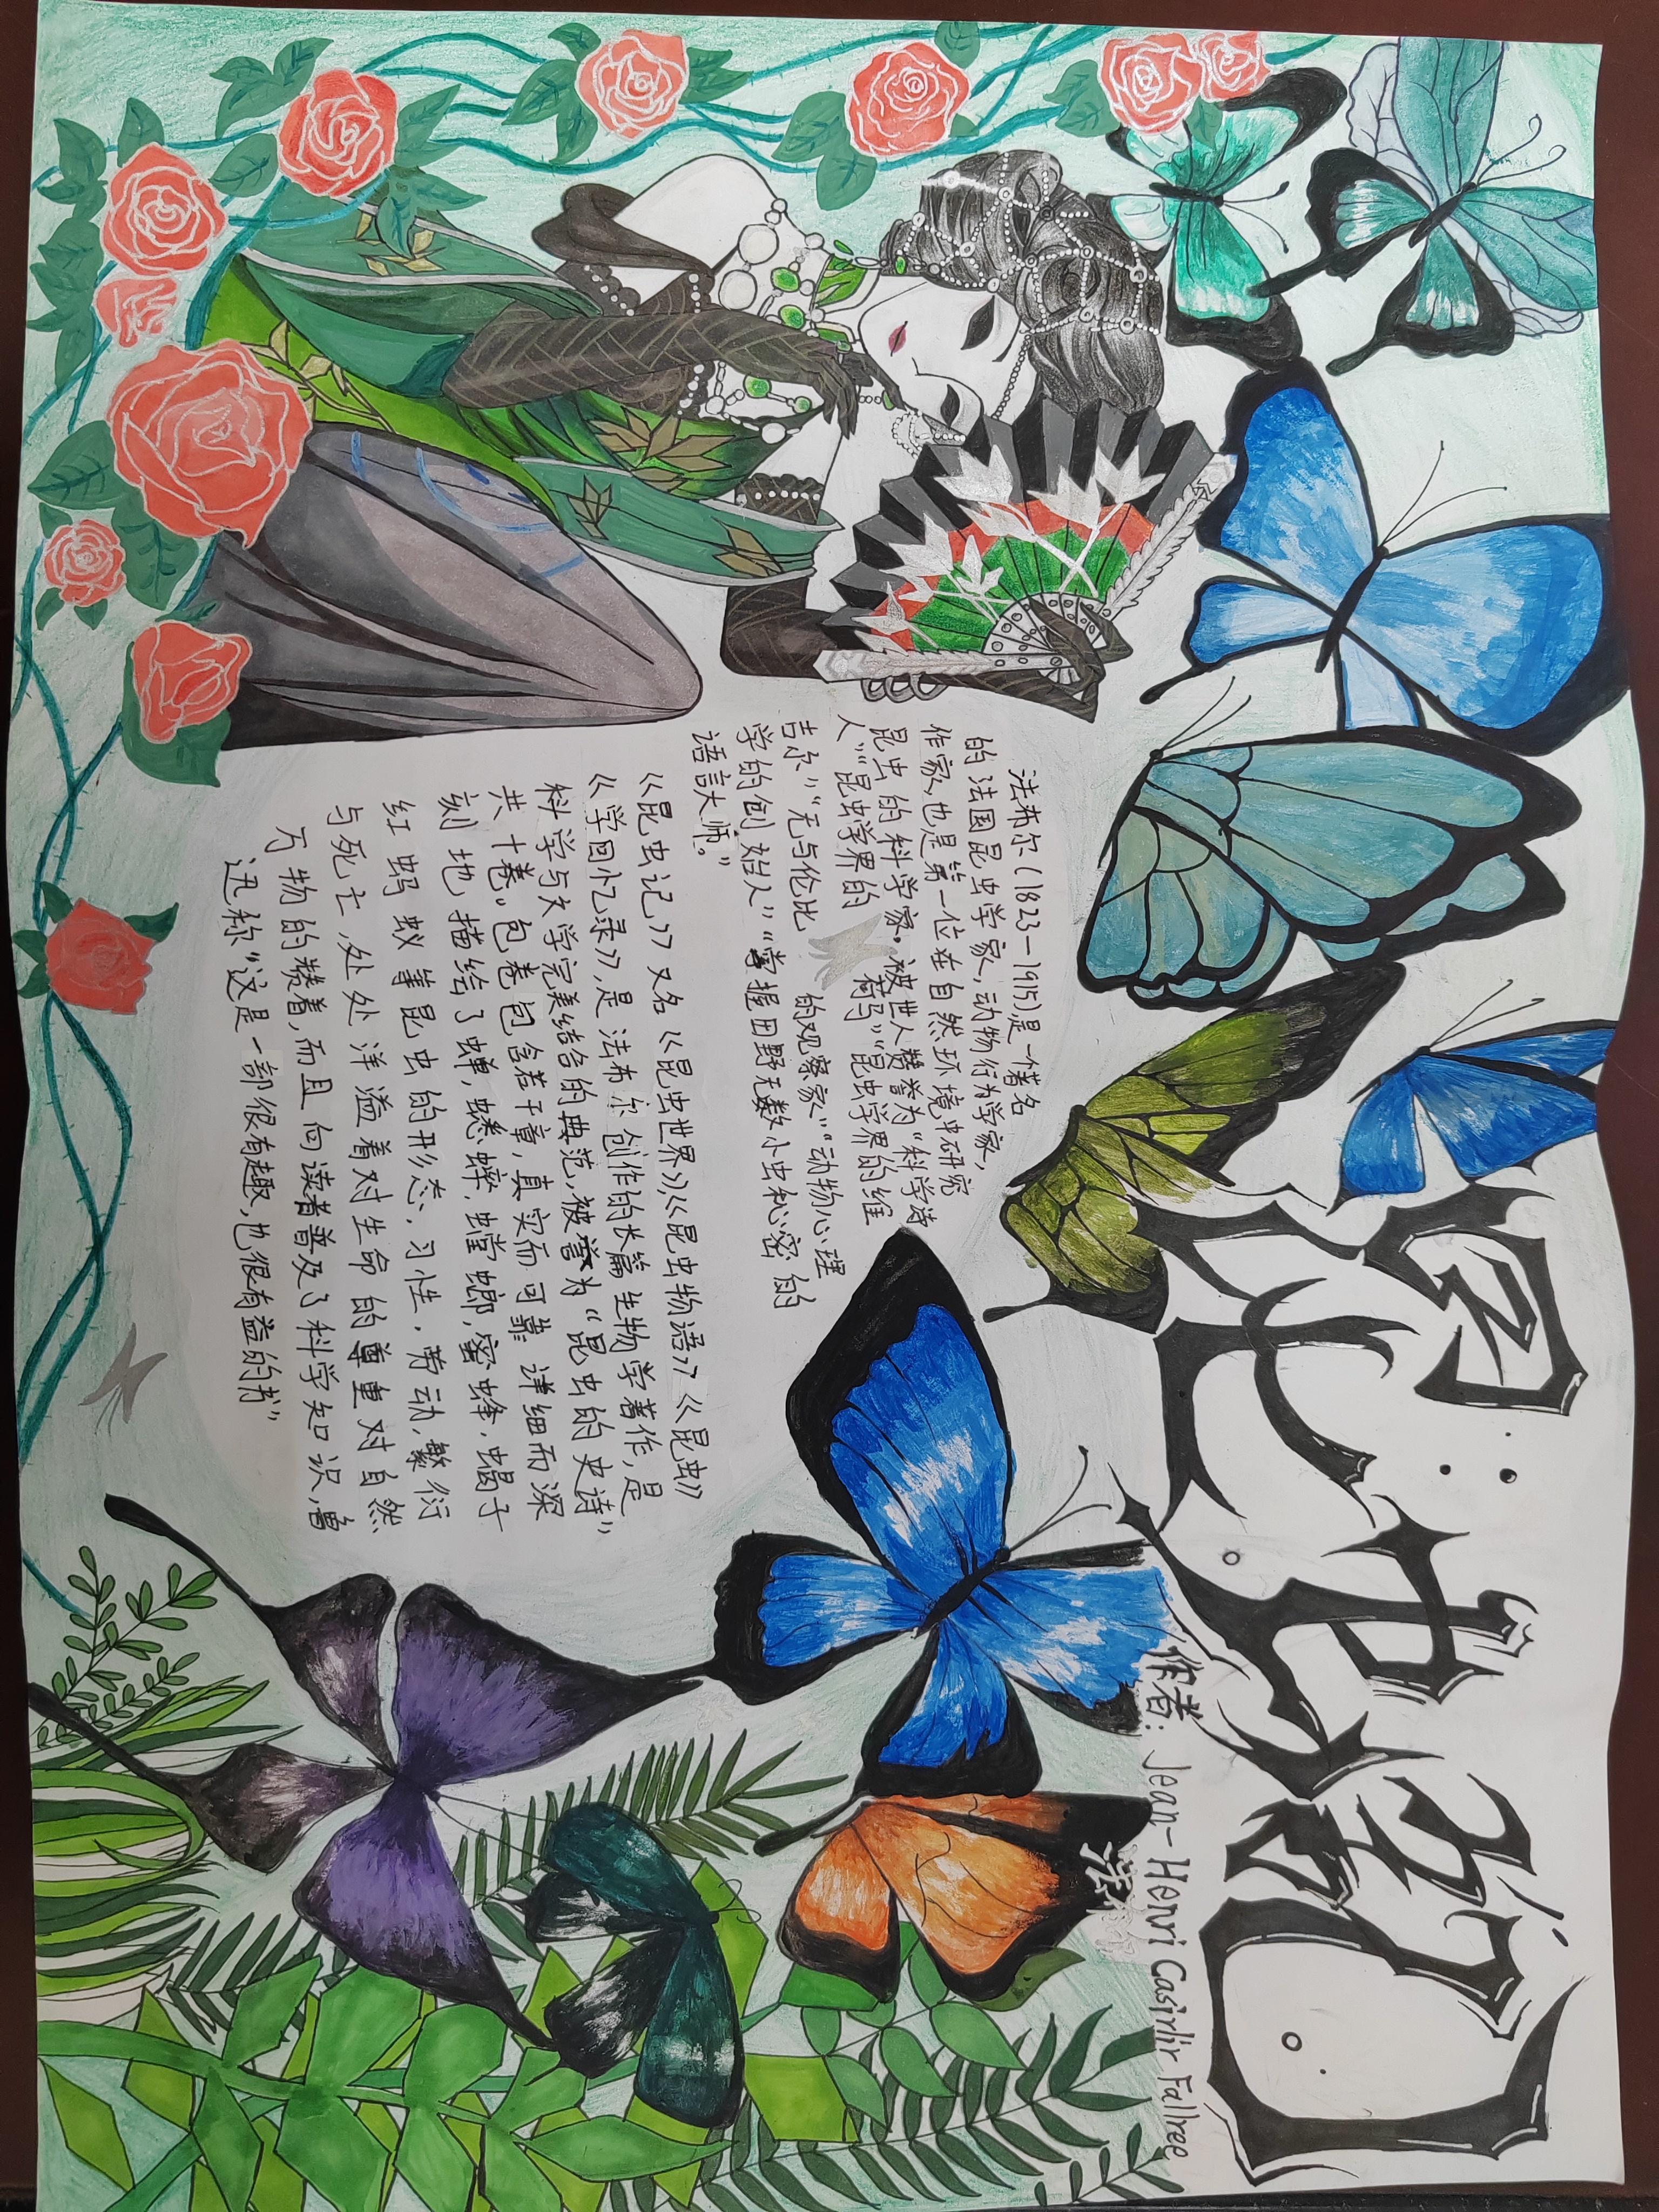 昆虫记
作者: Jean-Henri Casirlir Fallree
法布尔(1823—1915)是一个著名
的法国昆虫学家,动物行为学家,
作家,也是第一位在自然环境中研究
昆虫的科学家。被世人赞誉为“科学诗
人”“昆虫学界的荷马”“昆虫学界的维
吉尔”“无与伦比的观察家”“动物心理
学的创始人”“掌握田野无数小虫秘密的
语言大师。”
《昆虫记》又名《昆虫世界》《昆虫物语》《昆虫
学回忆录》,是法布尔创作的长篇生物学著作,是
科学与文学完美结合的典范,被誉为“昆虫的史诗”
共十卷。包卷包含若干章,真实而可靠 详细而深
刻地描绘了蝉,蟋蟀,螳螂,蜜蜂,蝎子
红蚂蚁等昆虫的形态,习性,劳动,繁衍
与死亡,处处洋溢着对生命的尊重对自然
万物的赞着,而且向读者普及了科学知识,鲁
迅称“这是一部很有趣,也很有益的书”